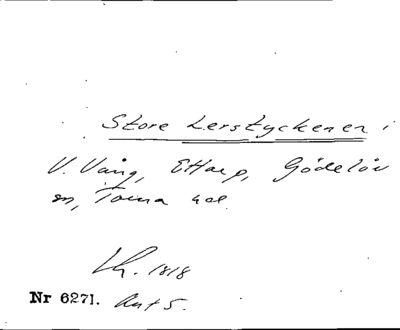 Store Lerstyckenen i
V. Vång, Ettarp, Gödelöv
sn, Torna hd.
Lh. 1818
Nr 6271. Ant 5.